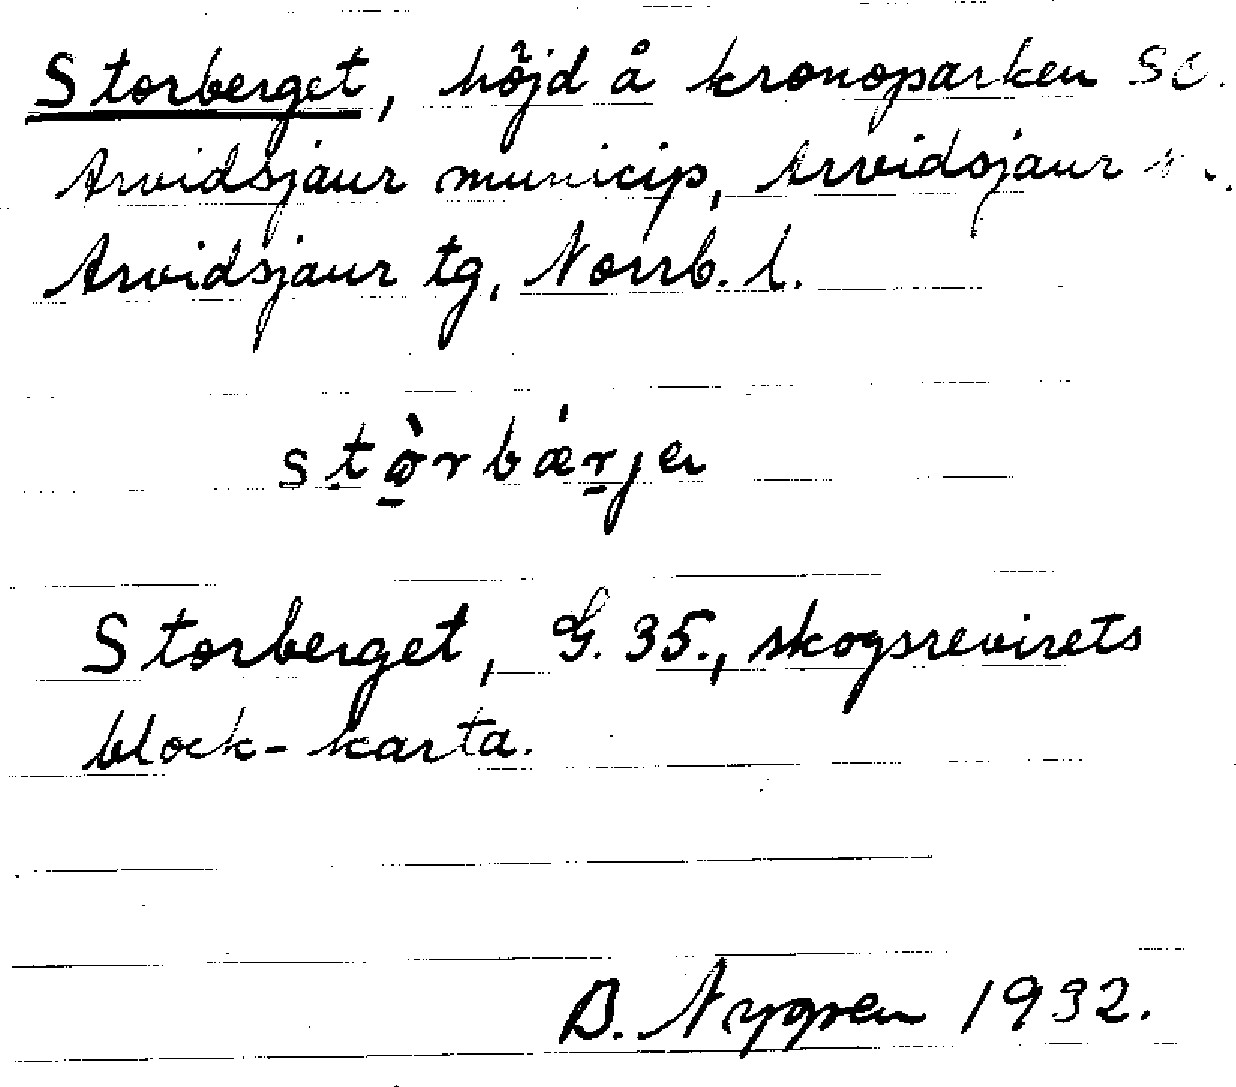 Storberget, höjd å kronoparken
Arvidsjaur municip, Arvidsjaur
Arvidsjaur tg, Norrb. l.
Storberget, G. 35., skogsrevirets
block-karta.
B. Nygren 1932.